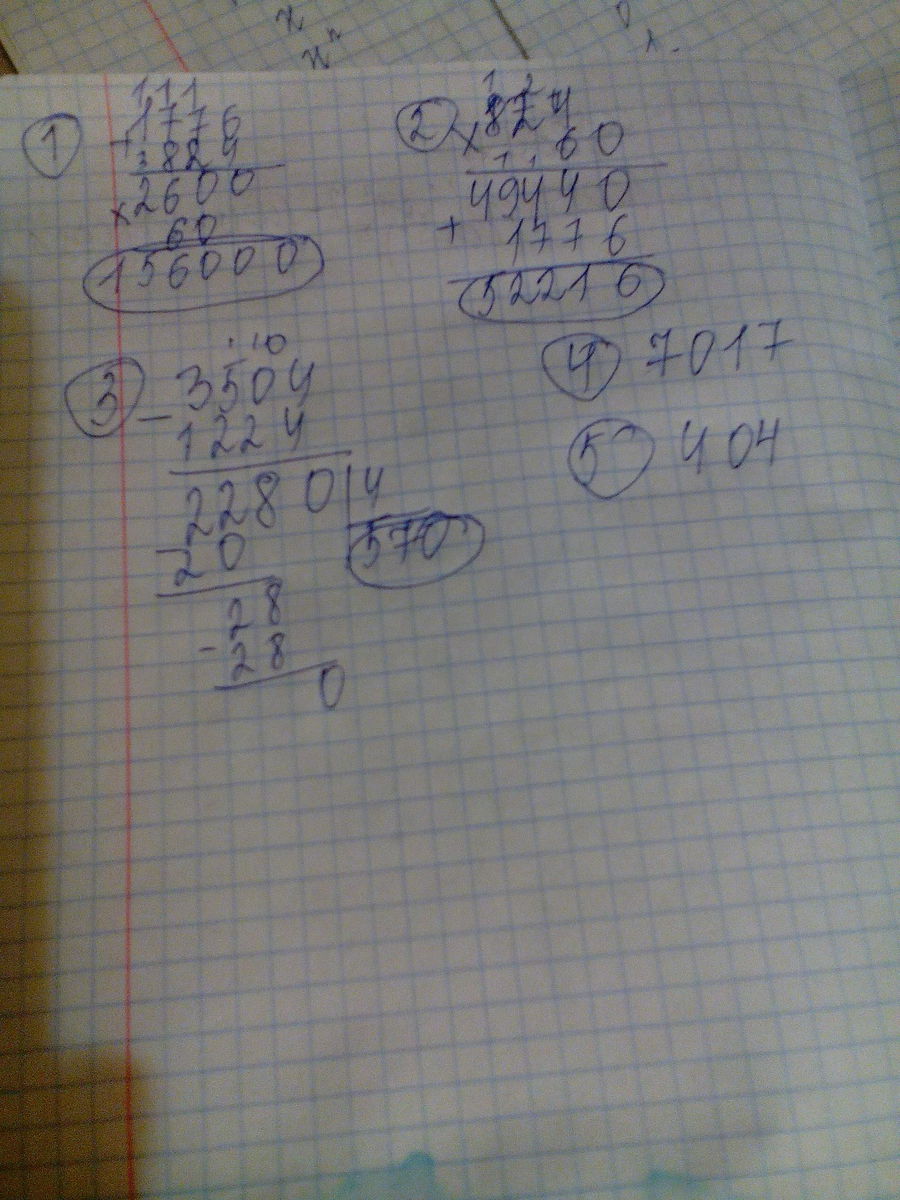 x
x^n
1 1 1
① + 1776
824
× 2600
60
156000
1 2
② × 824
60
49440
+ 1776
52216
. 10
③ - 3504
1224
2280 | 4
- 20 570
28
- 28
0
④ 7017
⑤ 404